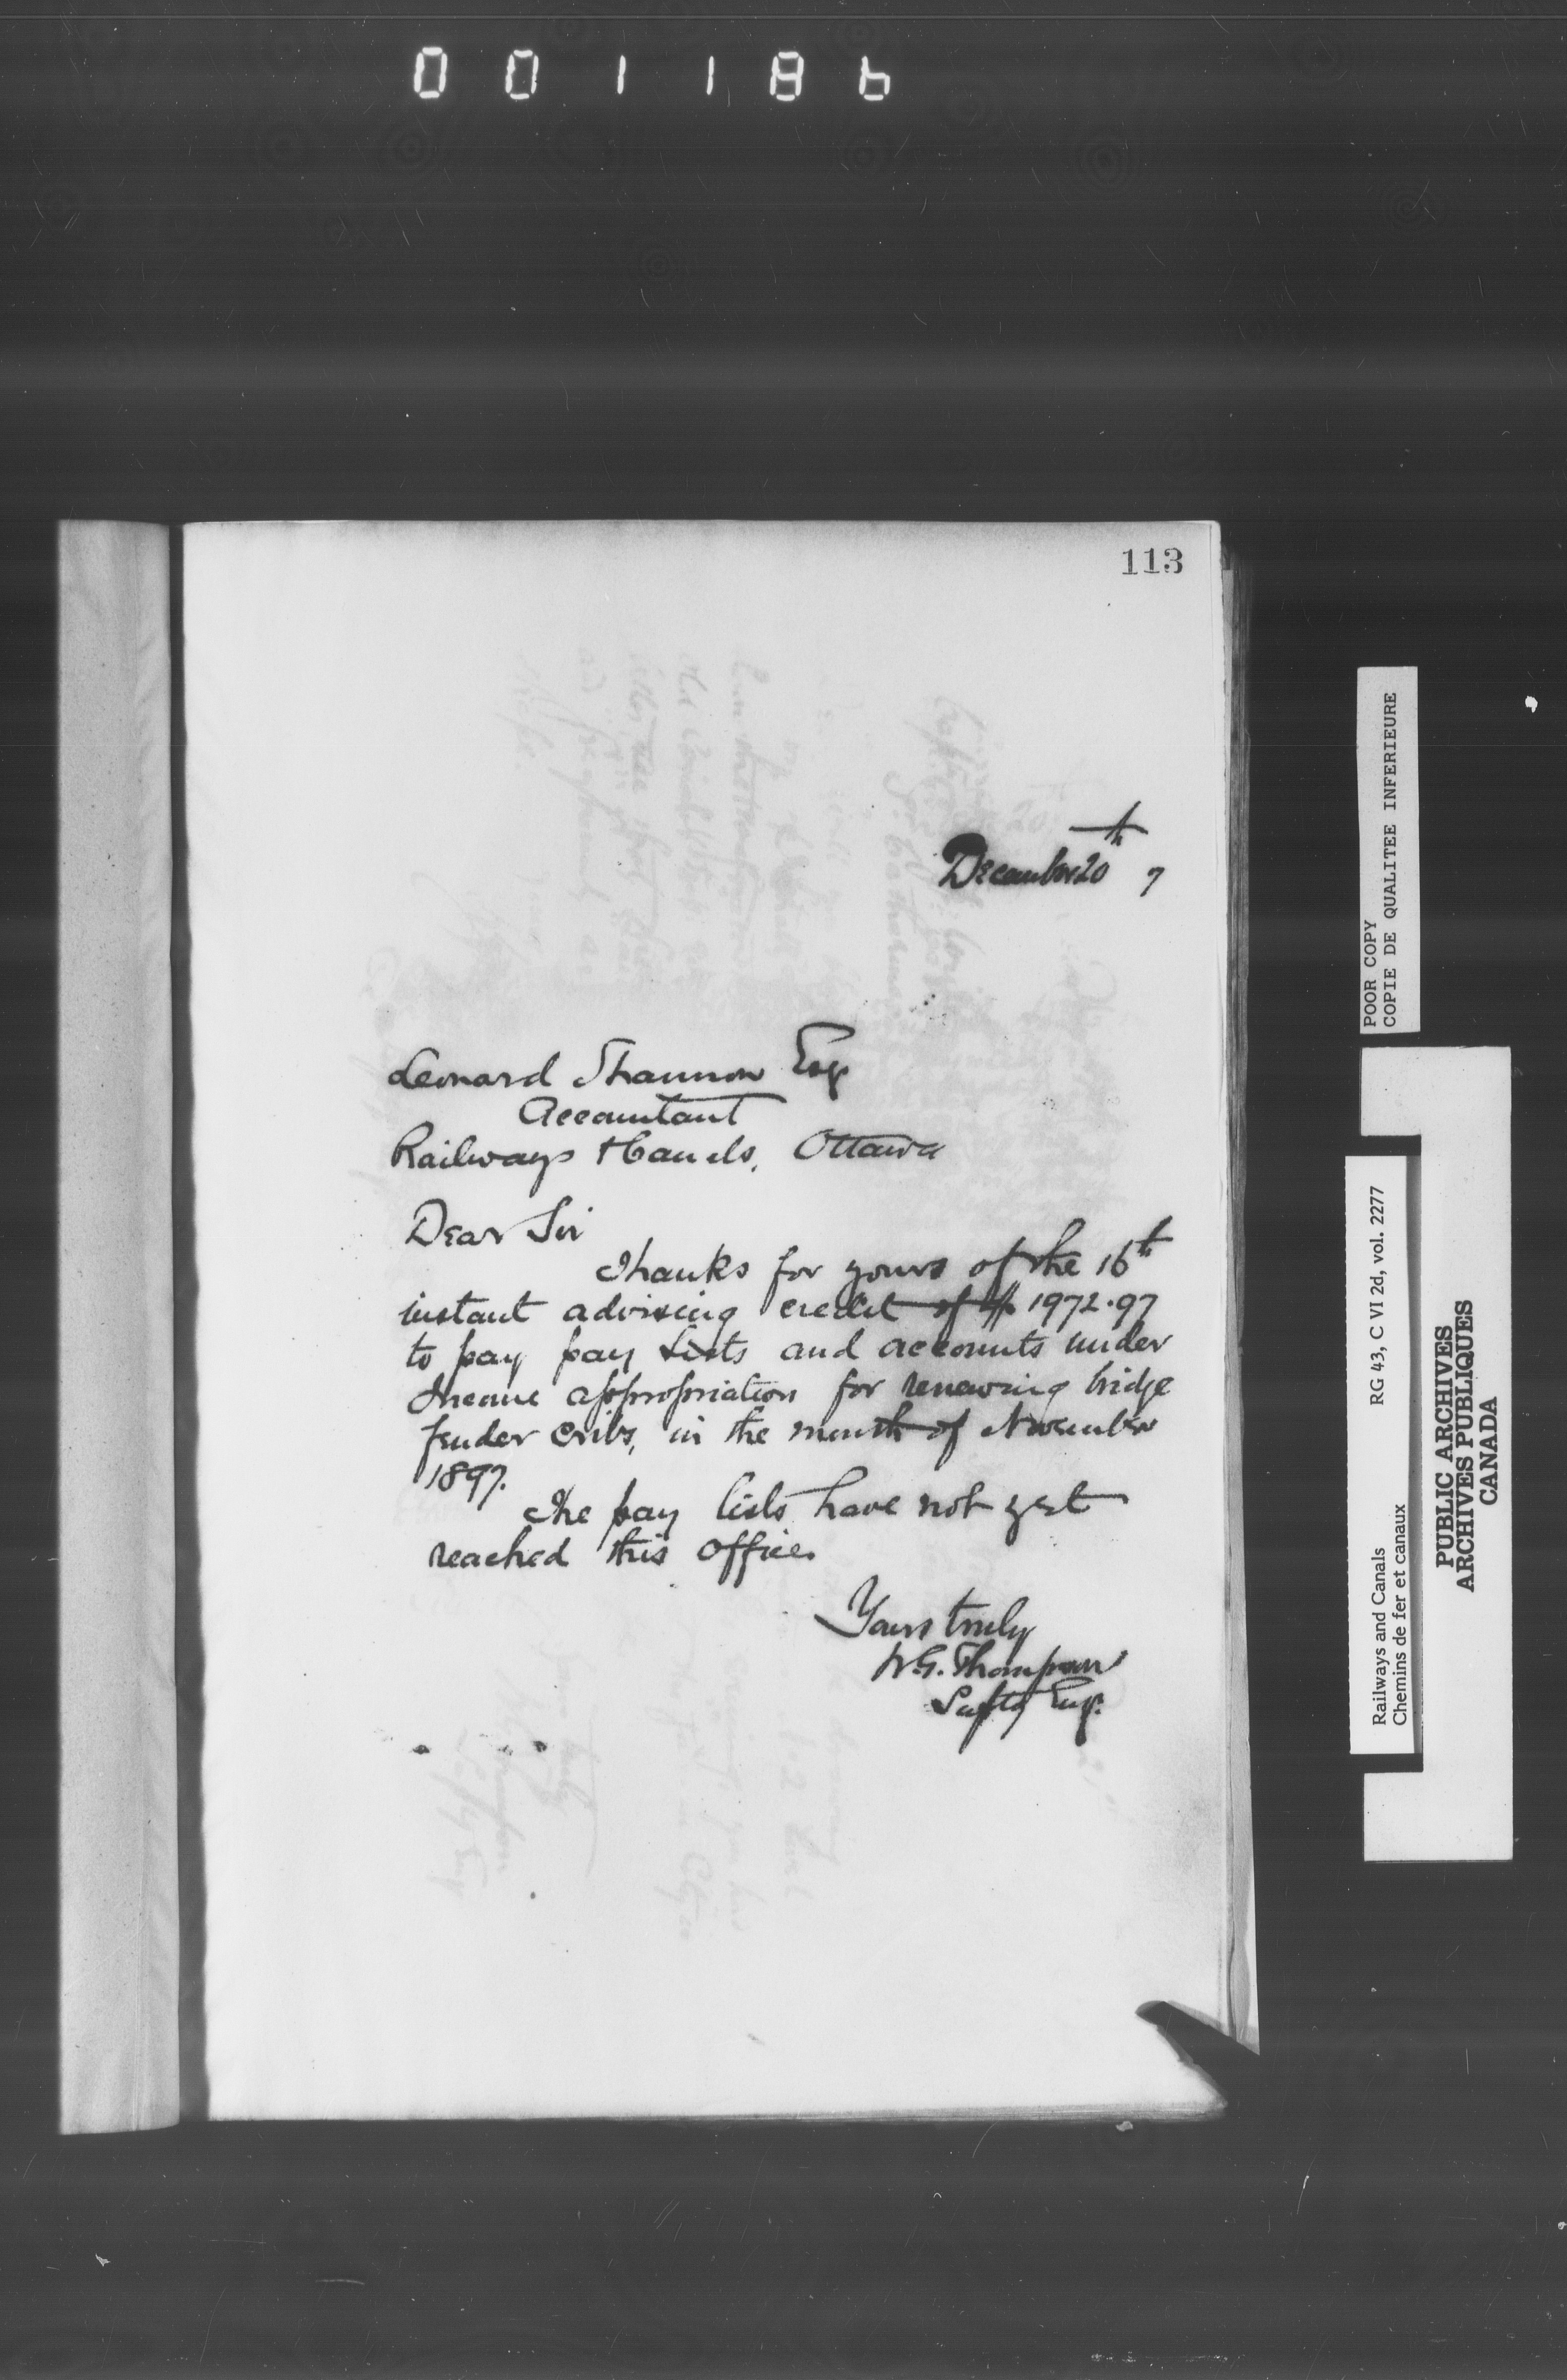 001186
113
December 20th 7
Leonard Shannon Esq
Accountant
Railways & Canals, Ottawa
Dear Sir
Thanks for yours of the 16th
instant advising credit of $ 1972.97
to pay pay lists and accounts under
Income appropriation for renewing bridge
fender cribs, in the month of November
1897.
The pay lists have not yet
reached this office.
Yours truly
W.G. Thompson
Suptg Eng.
POOR COPY
COPIE DE QUALITEE INFERIEURE
Railways and Canals RG 43, C VI 2d, vol. 2277
Chemins de fer et canaux
PUBLIC ARCHIVES
ARCHIVES PUBLIQUES
CANADA